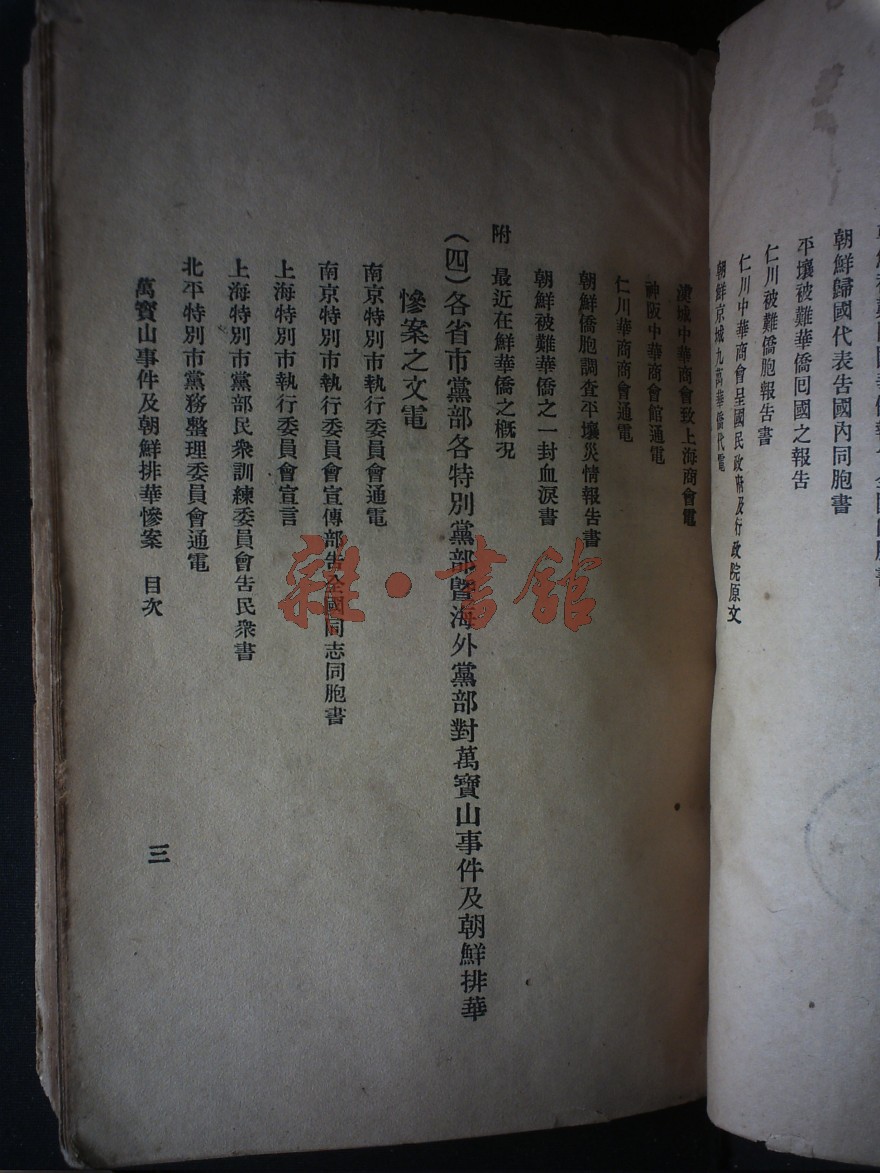 朝鮮歸國代表告國內同胞書
平壤被難華僑回國之報告
仁川被難僑胞報告書
仁川中華商會呈國民政府及行政院原文
朝鮮京城九萬華僑代電
漢城中華商會致上海商會電
神阪中華商會館通電
仁川華商商會通電
朝鮮僑胞調查平壤災情報告書
朝鮮被難華僑之一封血淚書
附 最近在鮮華僑之概況
(四)各省市黨部各特別黨部暨海外黨部對萬寶山事件及朝鮮排華
慘案之文電
南京特別市執行委員會通電
南京特別市執行委員會宣傳部告全國同志同胞書
上海特別市執行委員會宣言
上海特別市黨部民衆訓練委員會告民衆書
北平特別市黨務整理委員會通電
萬寶山事件及朝鮮排華慘案 目次
三
雜·書館